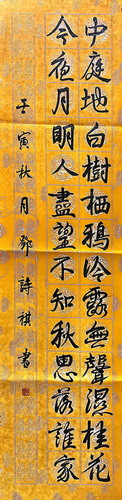 中庭地白樹栖鴉冷露無聲濕桂花
今夜月明人盡望不知秋思落誰家
壬寅秋月鄧詩祺書